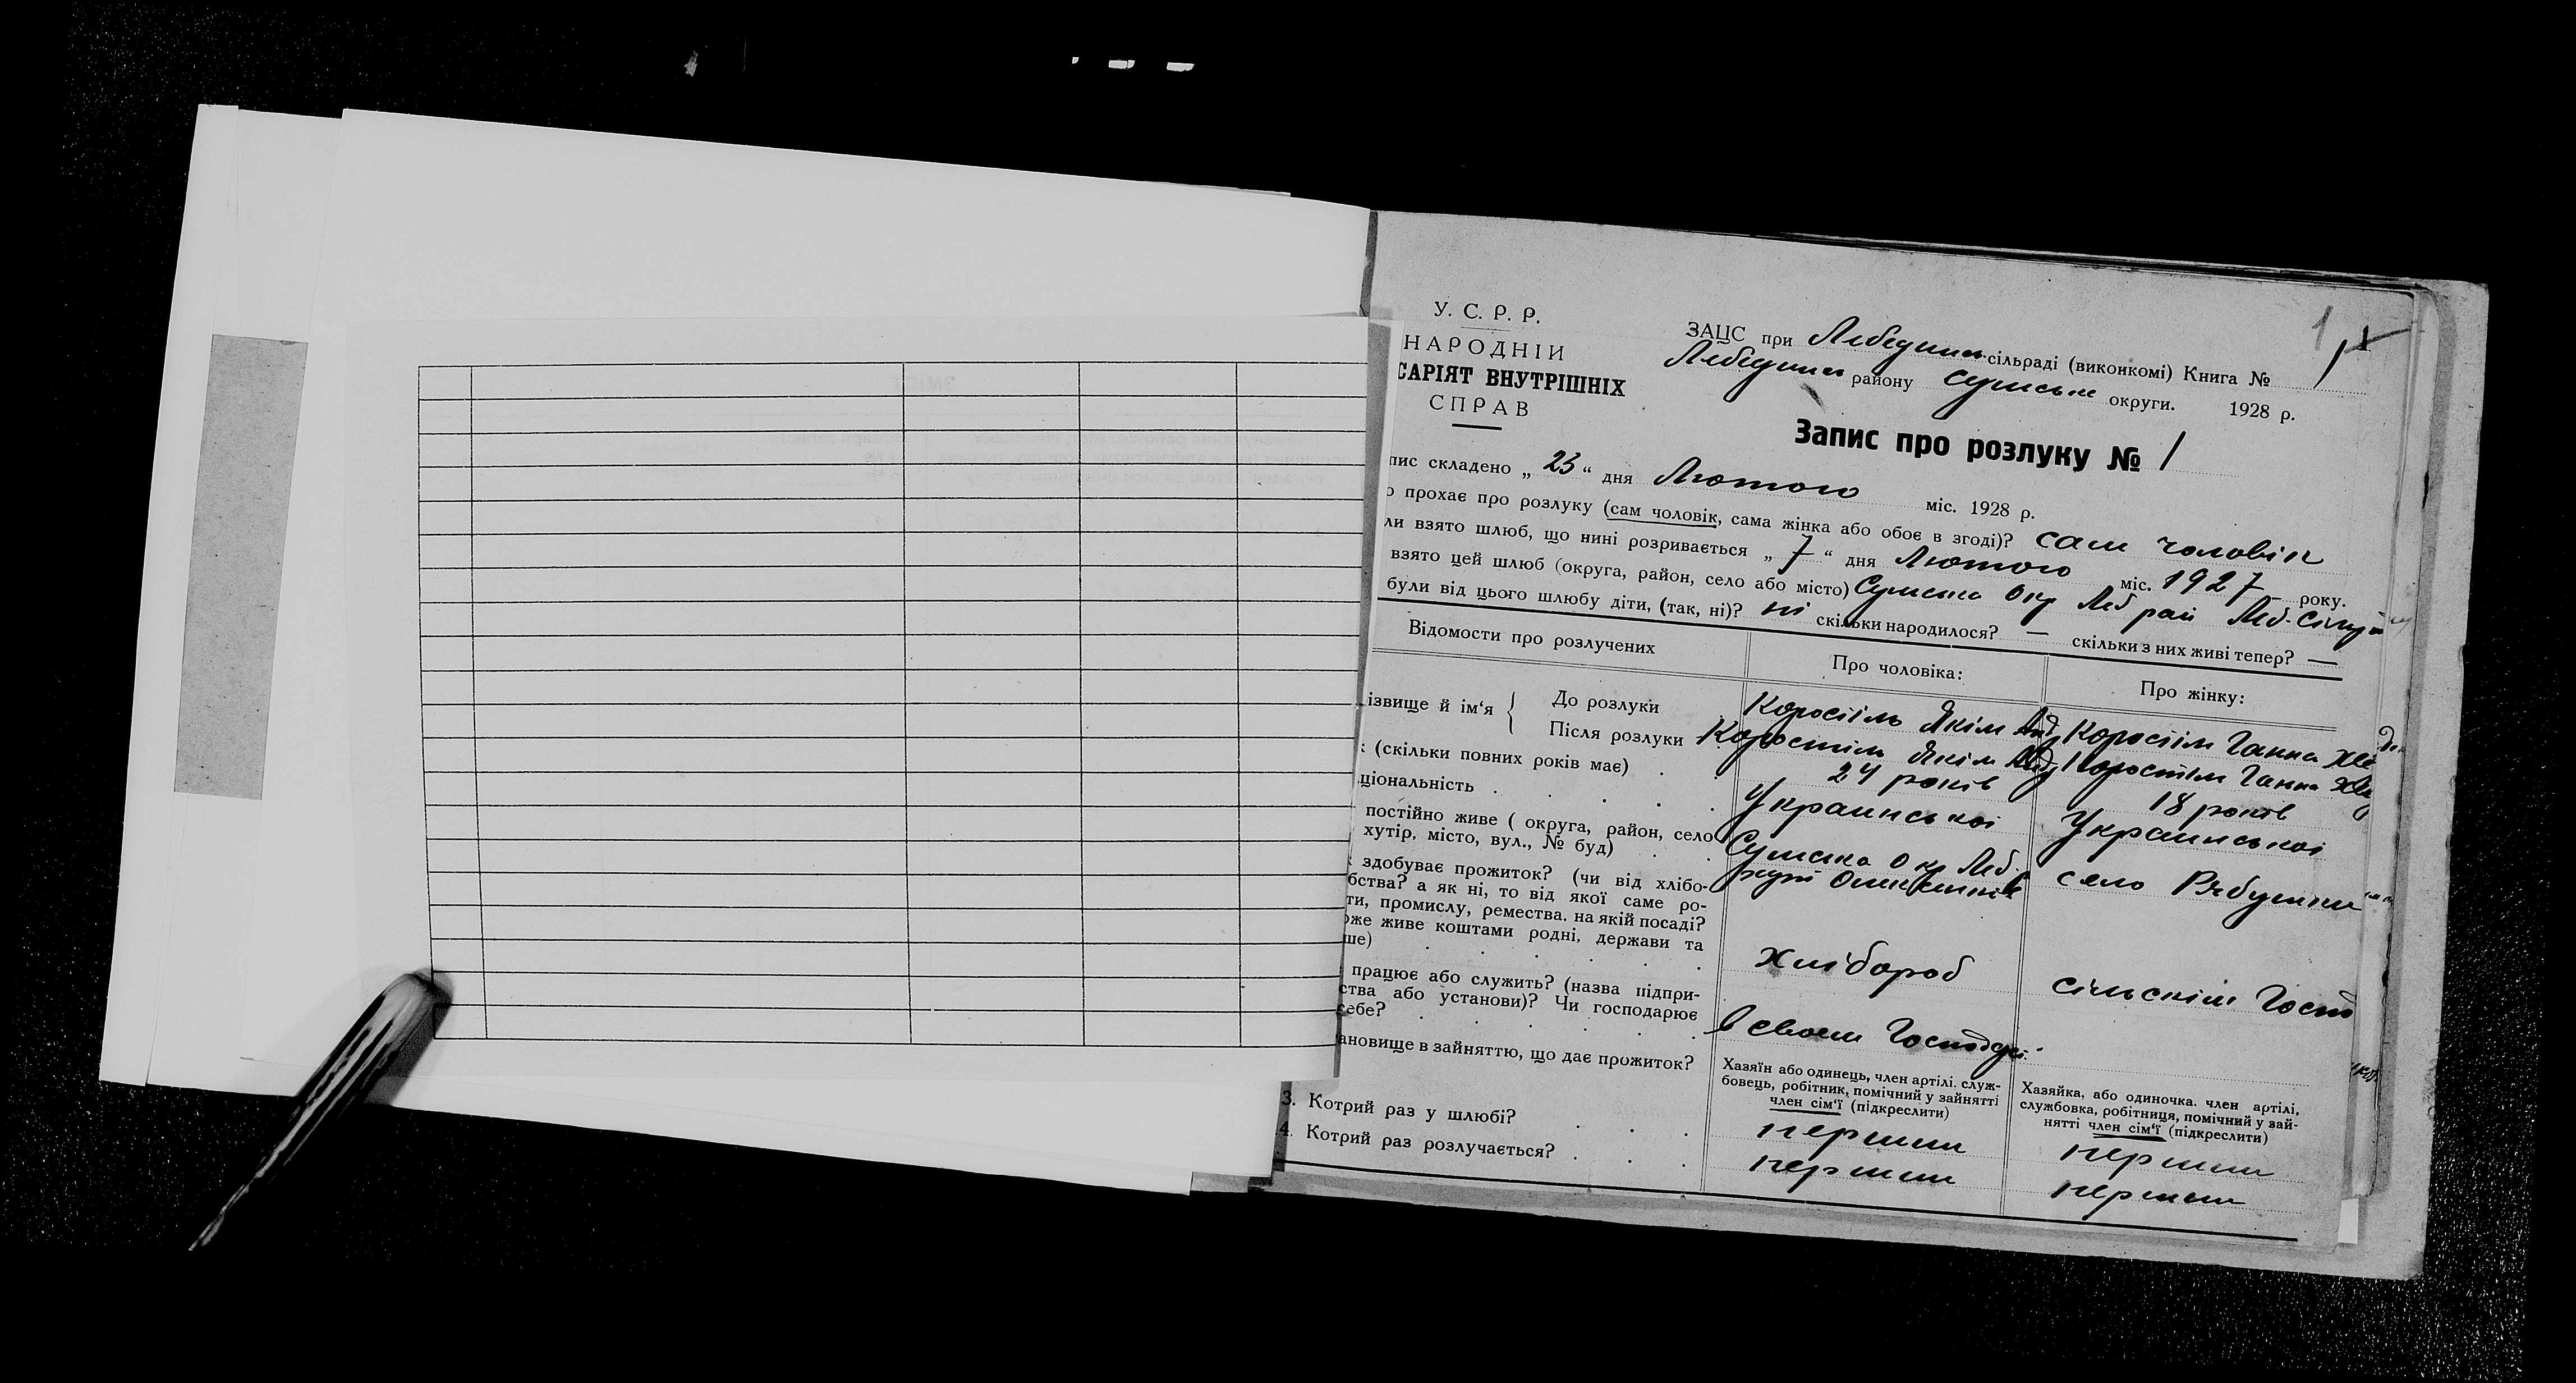 У. С. Р. Р.
НАРОДНІЙ
САРІЯТ ВНУТРІШНІХ
СПРАВ
1
ЗАЦС при Лебединс. сільраді (виконкомі) Книга № 1
Лебединс району Сумськ округи. 1928 р.
Запис про розлуку № 1
пис складено „ 23 “ дня Лютого міс. 1928 р.
о прохає про розлуку (сам чоловік, сама жінка або обоє в згоді)? сам чоловік
ли взято шлюб, що нині розривається „ 7 “ дня Лютого міс. 1927 року.
взято цей шлюб (округа, район, село або місто) Сумська Окр Леб рай Леб-
були від цього шлюбу діти, (так, ні)? ні скільки народилося? — скільки з них живі тепер? —
Відомости про розлучених Про чоловіка: Про жінку:
ізвище й ім‘я До розлуки Коростіль Якім Коростіль Ганна
Після розлуки Коростіль Якім Коростіль Ганна
(скільки повних років має) 24 років 18 років
ціональність Украинськоі Украинськоі
постійно живе ( округа, район, село
хутір, місто, вул., № буд) Сумська Окр Леб село Рябушки
здобуває прожиток? (чи від хлібо-
бства? а як ні, то від якої саме ро-
ти, промислу, ремества. на якій посаді?
оже живе коштами родні, держави та
ше) хлібороб сільскім Госпо
працює або служить? (назва підпри-
ства або установи)? Чи господарює
себе? в своем Господар
ановище в зайняттю, що дає прожиток?
Хазяїн або одинець, член артілі. служ-
бовець, робітник, помічний у зайнятті
член сім‘ї (підкреслити)
Хазяйка, або одиночка. член артілі,
службовка, робітниця, помічний у зай-
нятті член сім‘ї (підкреслити)
3. Котрий раз у шлюбі? перший перший
4. Котрий раз розлучається? перший перший